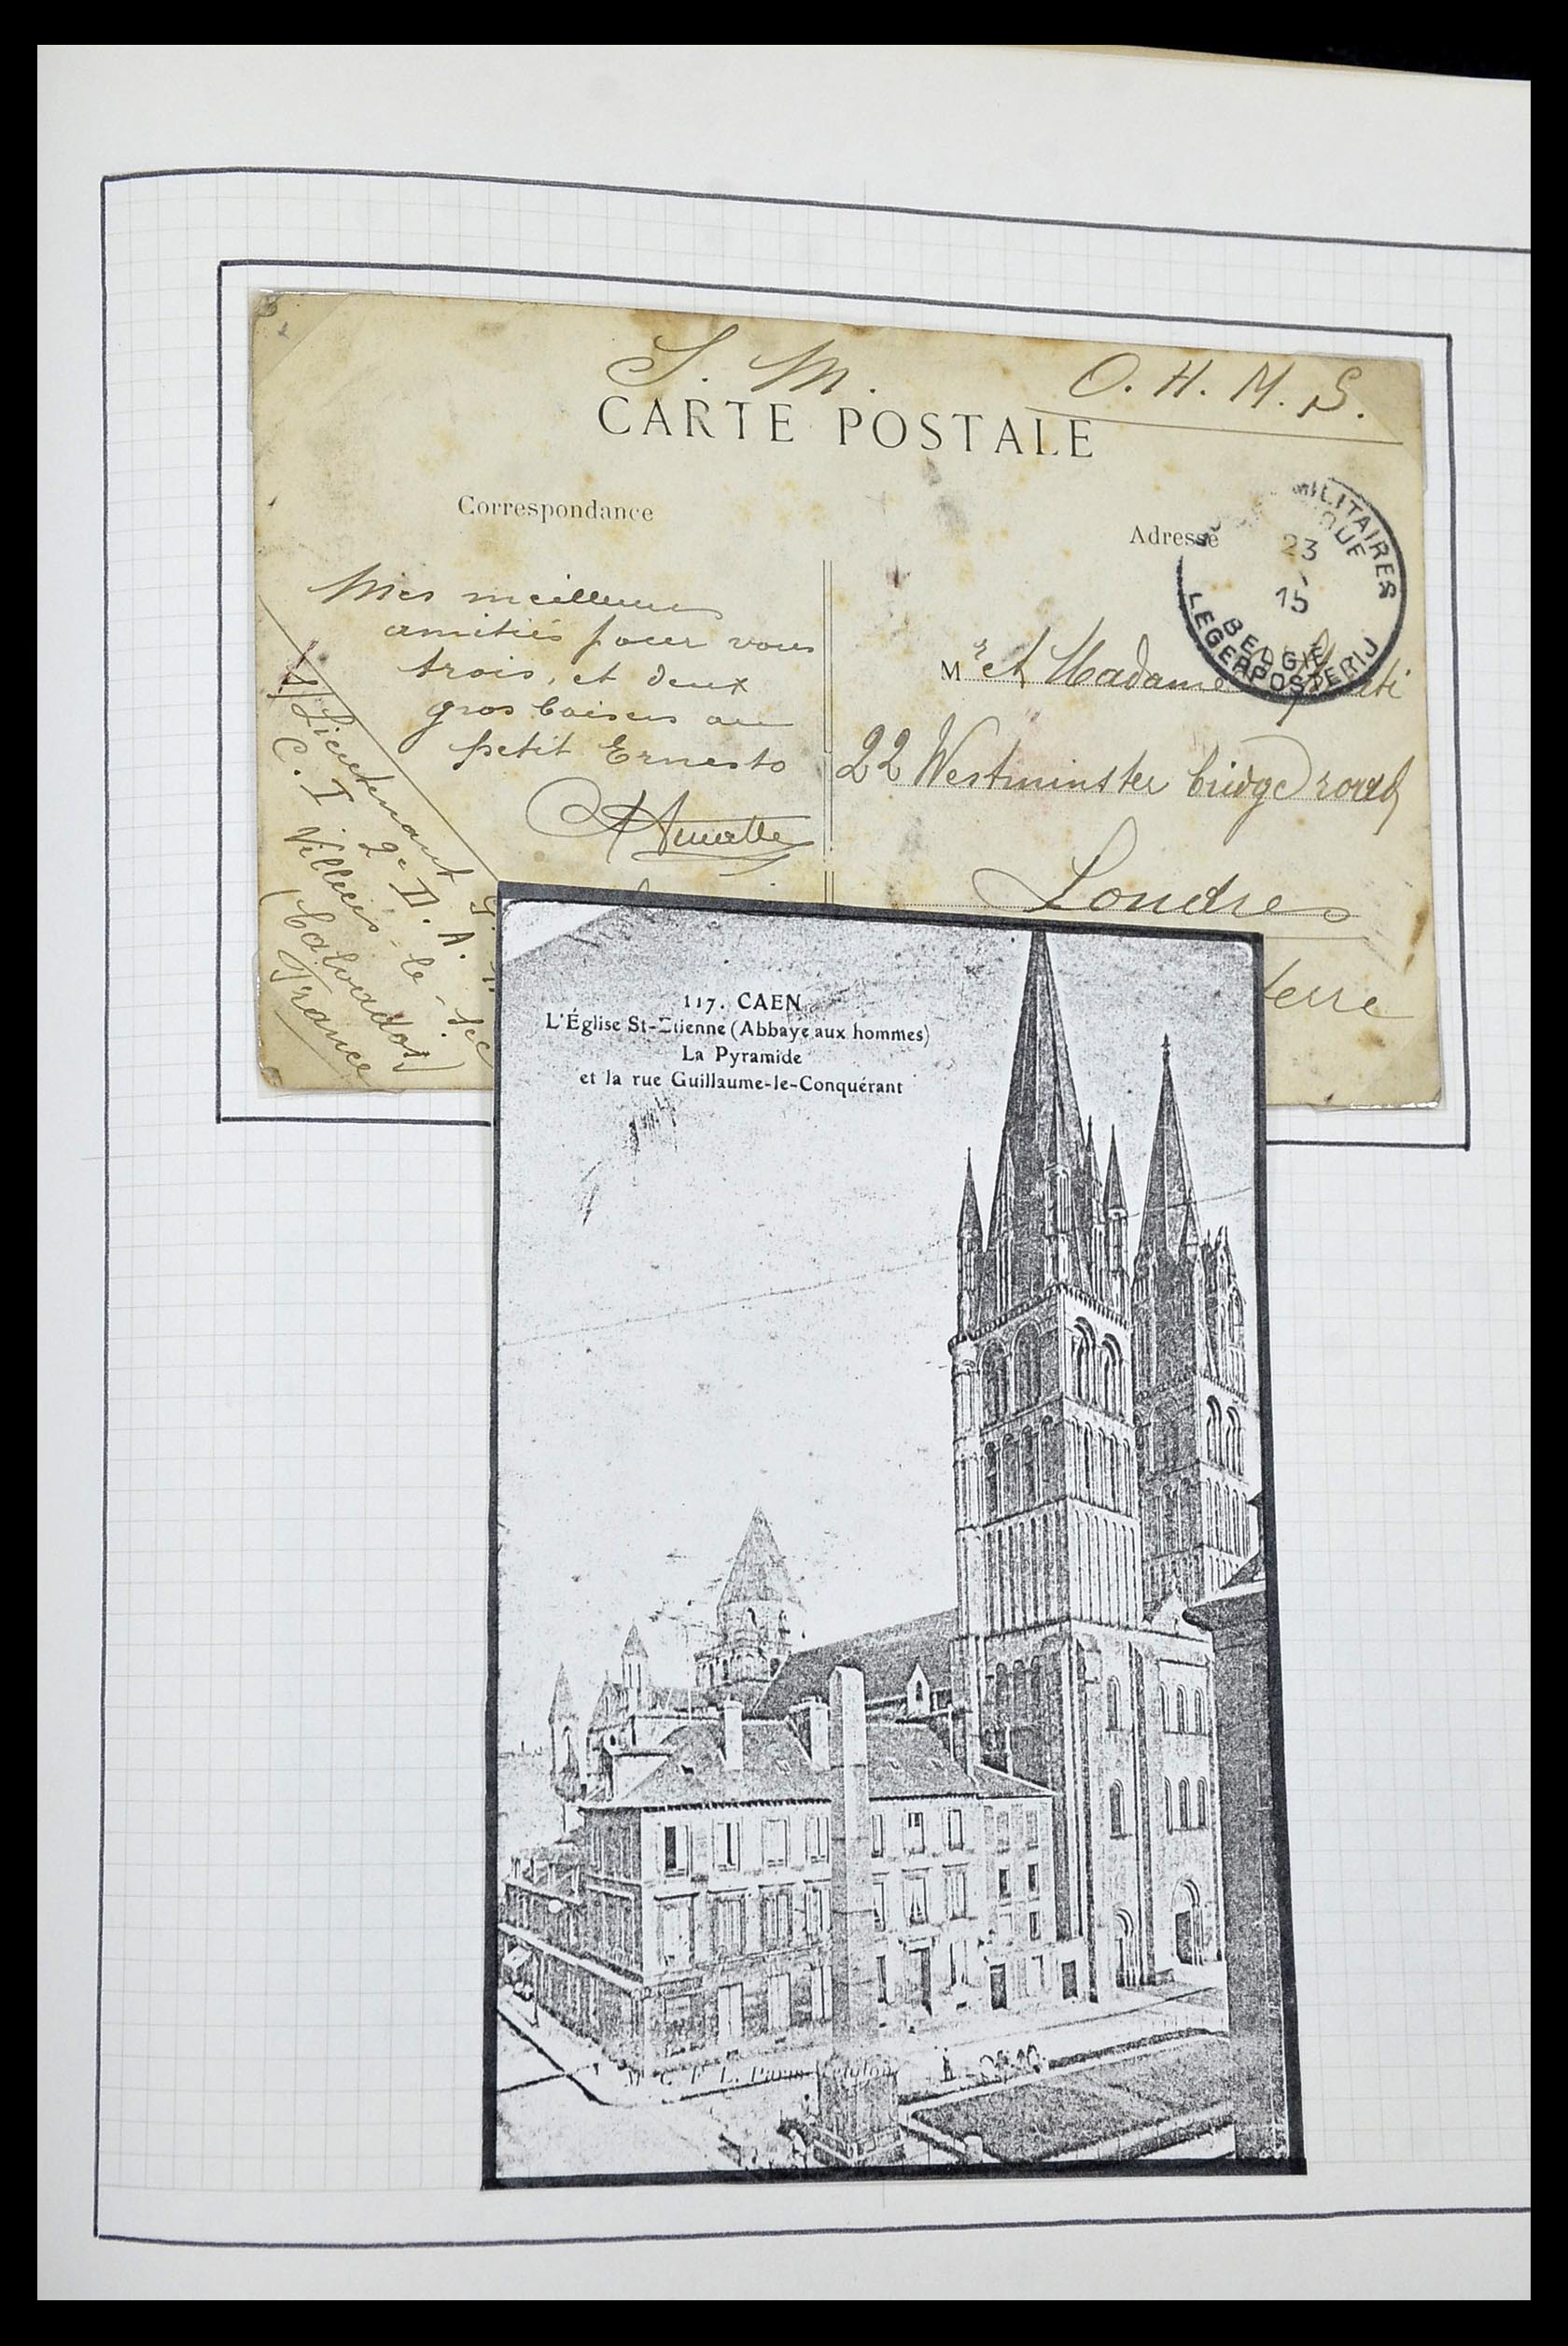 S. M. O. H. M. S.
CARTE POSTALE
Correspondance
Adresse
MILITAIRES
QUE
23
15
BELGIE
LEGERPOSTERIJ
Mes meilleures
amitiés pour vous
trois, et deux
gros baisers au
petit Ernesto
Mr et Madame
22 Westminster bridge road
Londres
terre
Lieutenant
C. I 2e D. A.
Villiers-le-sec
(Calvados)
France
117. CAEN
L'Église St-Etienne (Abbaye aux hommes)
La Pyramide
et la rue Guillaume-le-Conquérant